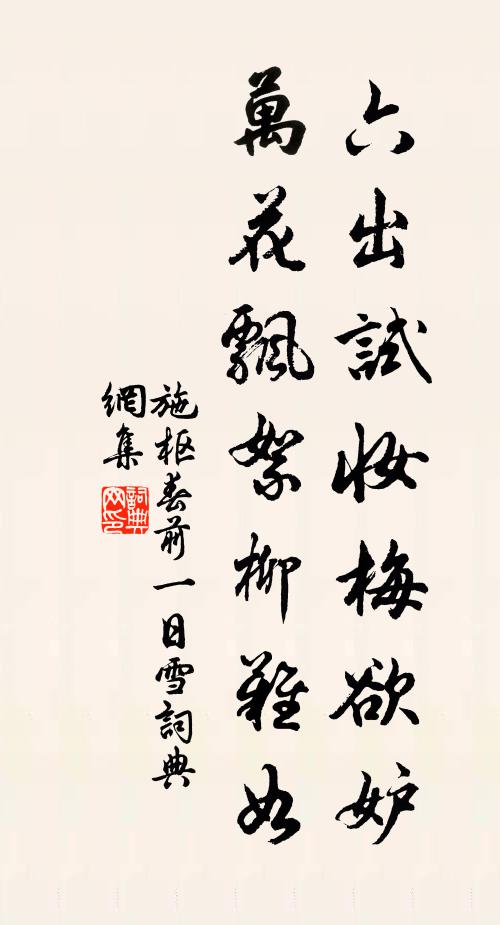 六出試妝梅欲妒
萬花飄絮柳難如
施枢春前一日雪詞典
網集
詞典
网印